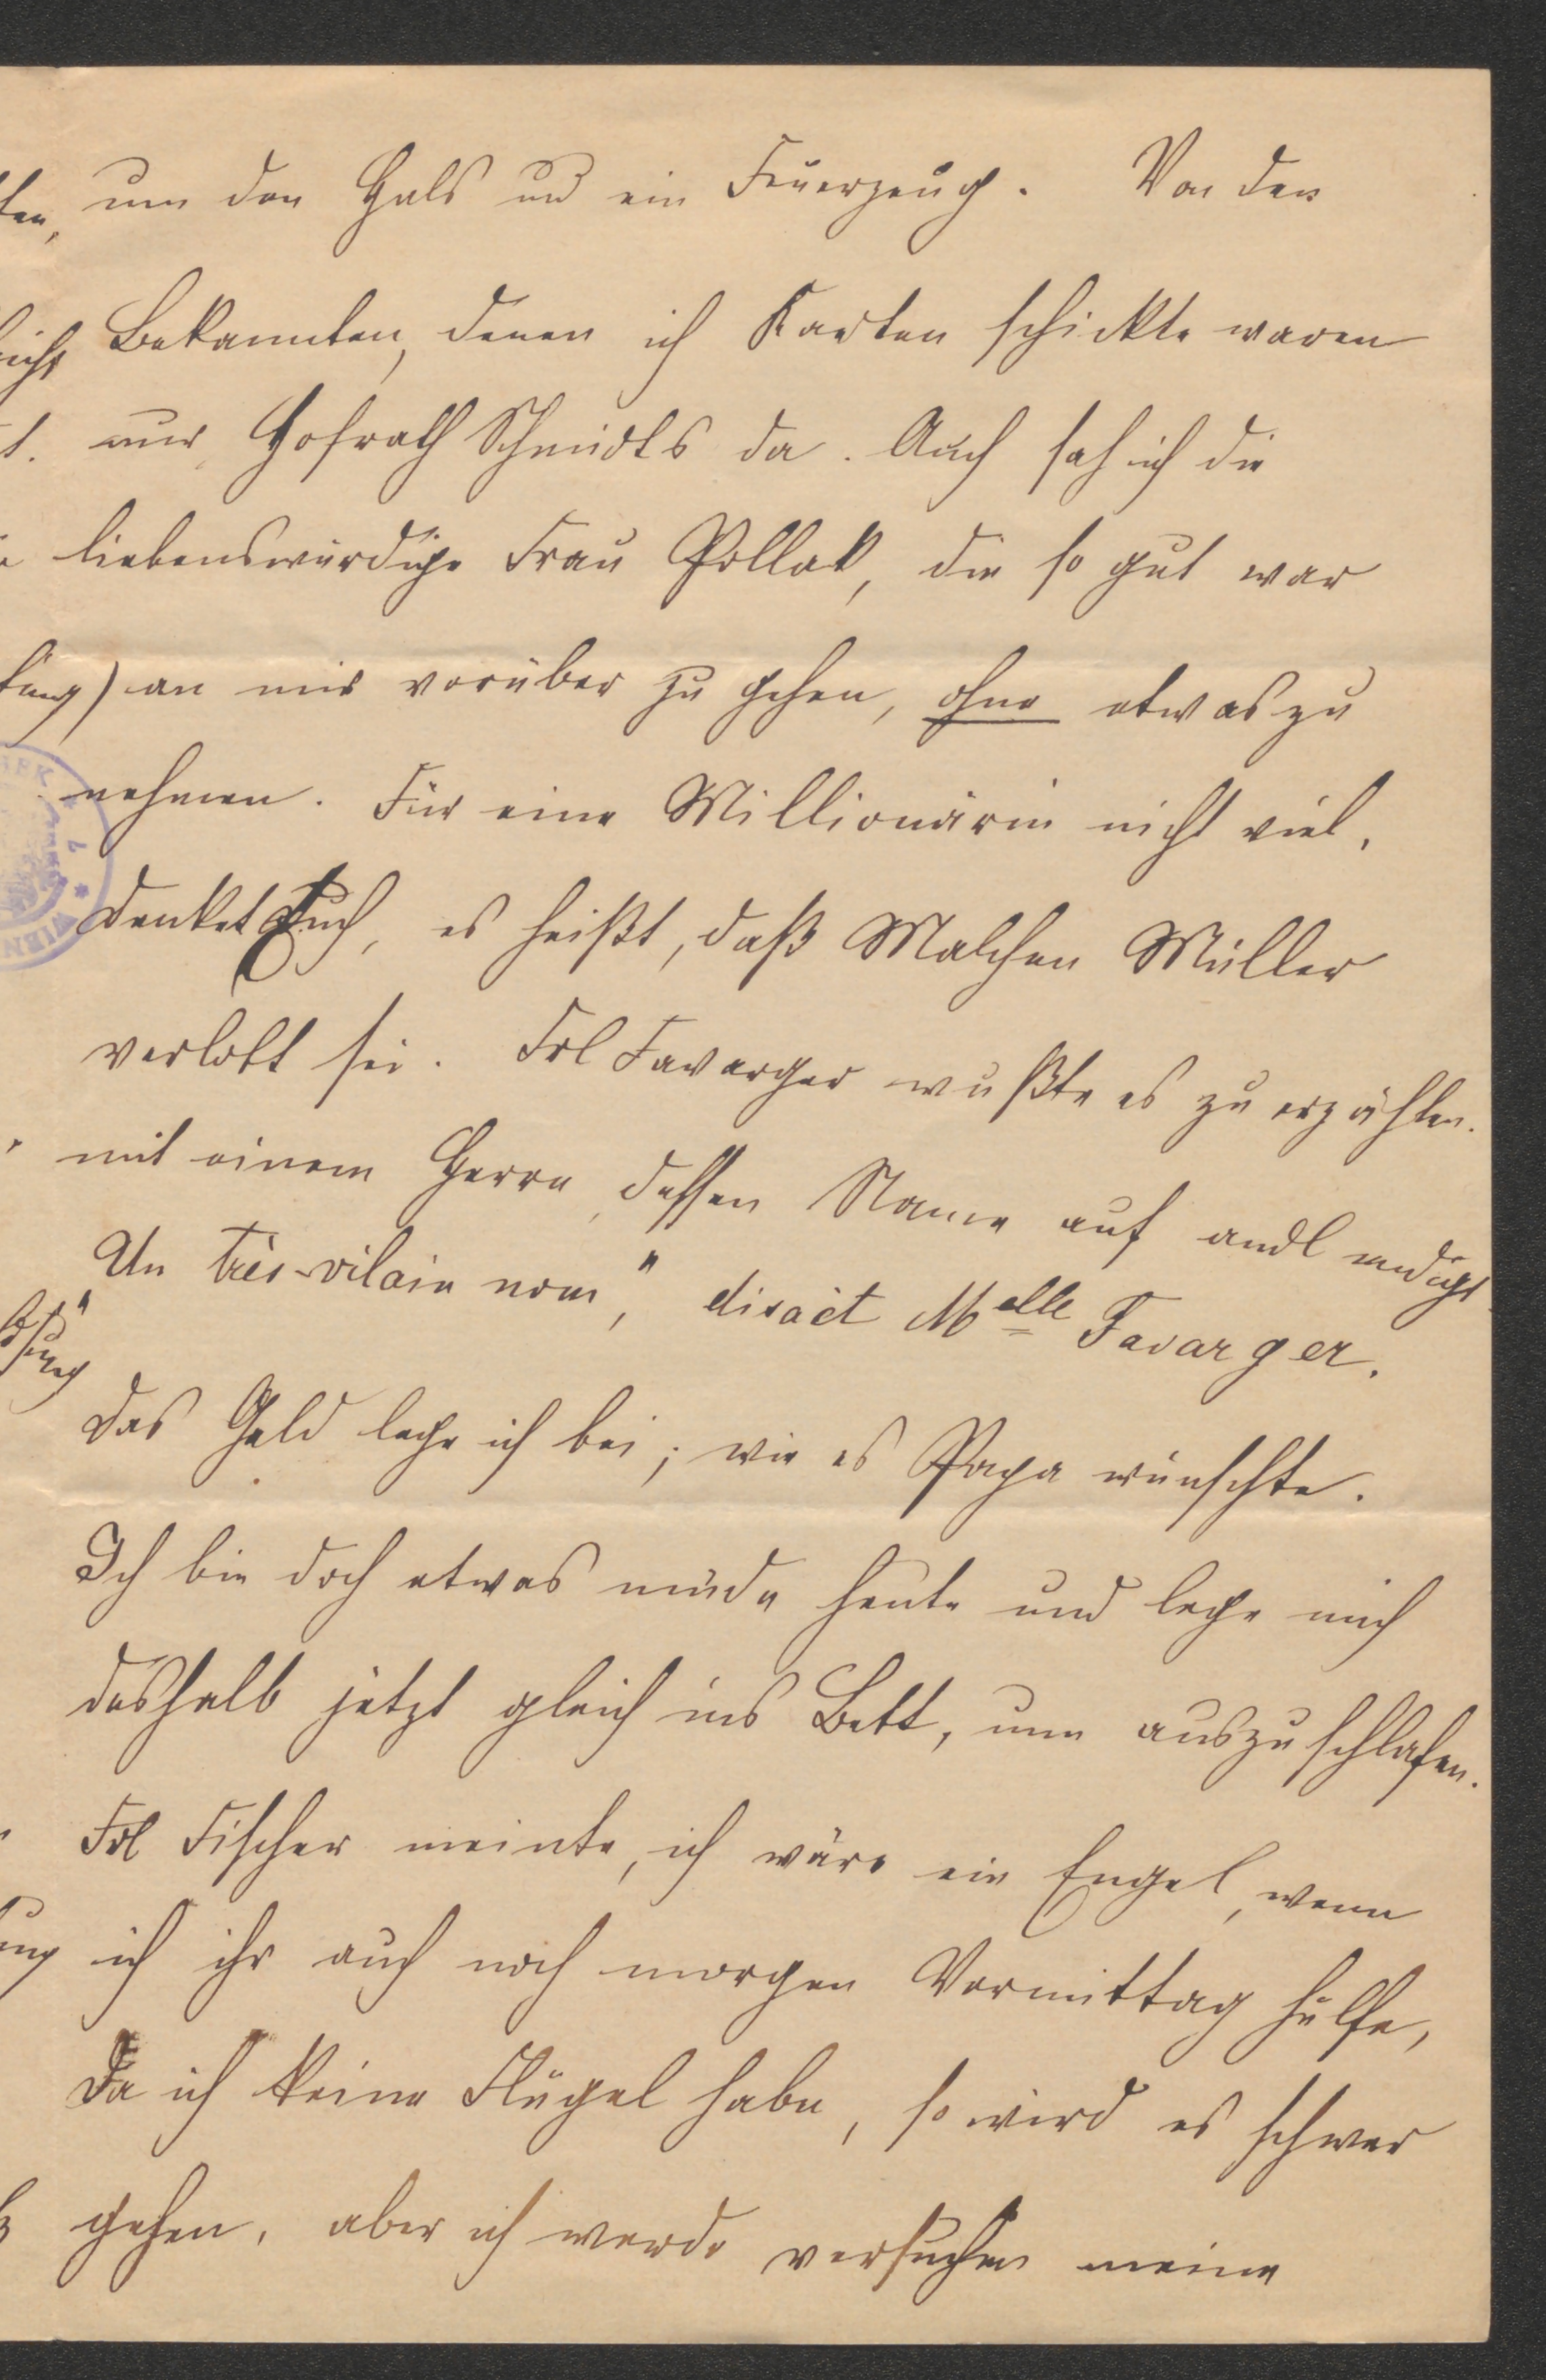 um den Hals und ein Feuerzeug. Von den
Bekannten, denen ich Karten schickte waren
nur Hofrath Schmidts da. Auch sah ich die
liebenswürdige Frau Pollak, die so gut war
an mir vorüber zu gehen, ohne etwas zu
nehmen. Für eine Millionärin nicht viel.
Denket Euch, es heißt, daß Malchen Müller
verlobt sei. Frl Favarger wußte es zu erzählen.
mit einem Herrn, dessen Name auf andl endigt.
Un très-vilain nom," disait Melle Favarger.
Das Geld lege ich bei; wie es Papa wünschte.
Ich bin doch etwas müde heute und lege mich
deshalb jetzt gleich ins Bett, um auszuschlafen.
Frl Fischer meinte, ich wäre ein Engel, wenn
ich ihr auch noch morgen Vormittag hülfe,
Da ich keine Flügel habe, so wird es schwer
gehen, aber ich werde versuchen meine
WIEN